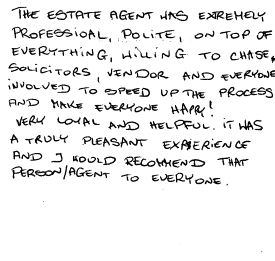 THE ESTATE AGENT WAS EXTREMELY
PROFESSIONAL, POLITE, ON TOP OF
EVERYTHING, WILLING TO CHASE,
SOLICITORS, VENDOR AND EVERYONE
INVOLVED TO SPEED UP THE PROCESS
AND MAKE EVERYONE HAPPY!
VERY LOYAL AND HELPFUL. IT WAS
A TRULY PLEASANT EXPERIENCE
AND I WOULD RECOMMEND THAT
PERSON/AGENT TO EVERYONE.